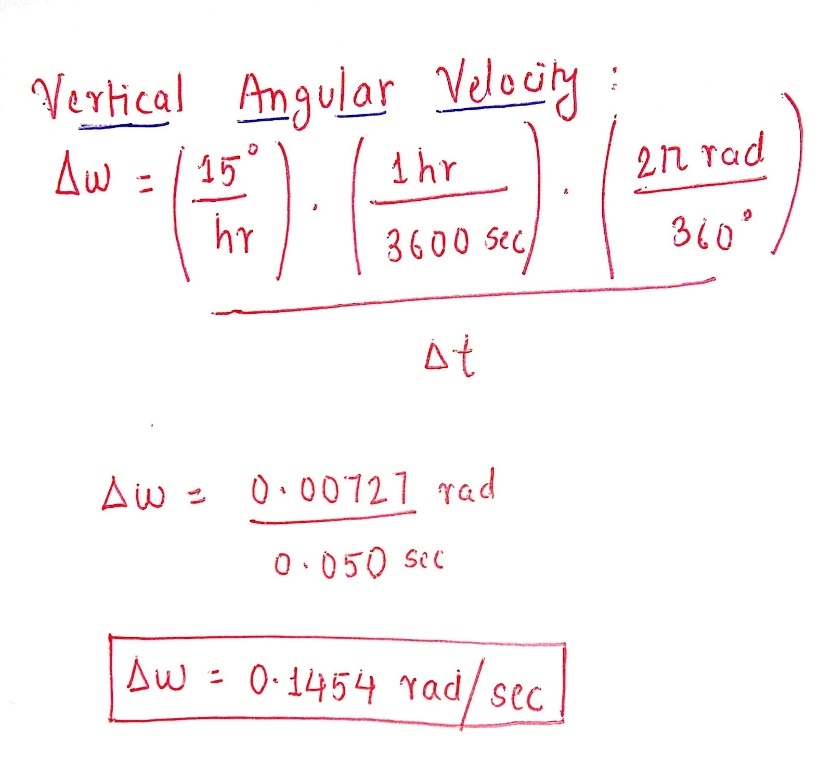 Vertical Angular Velocity :
Δω = (15°/hr) · (1hr/3600 sec) · (2π rad/360°)
Δt
Δω = 0.00727 rad
0.050 sec
Δω = 0.1454 rad/sec